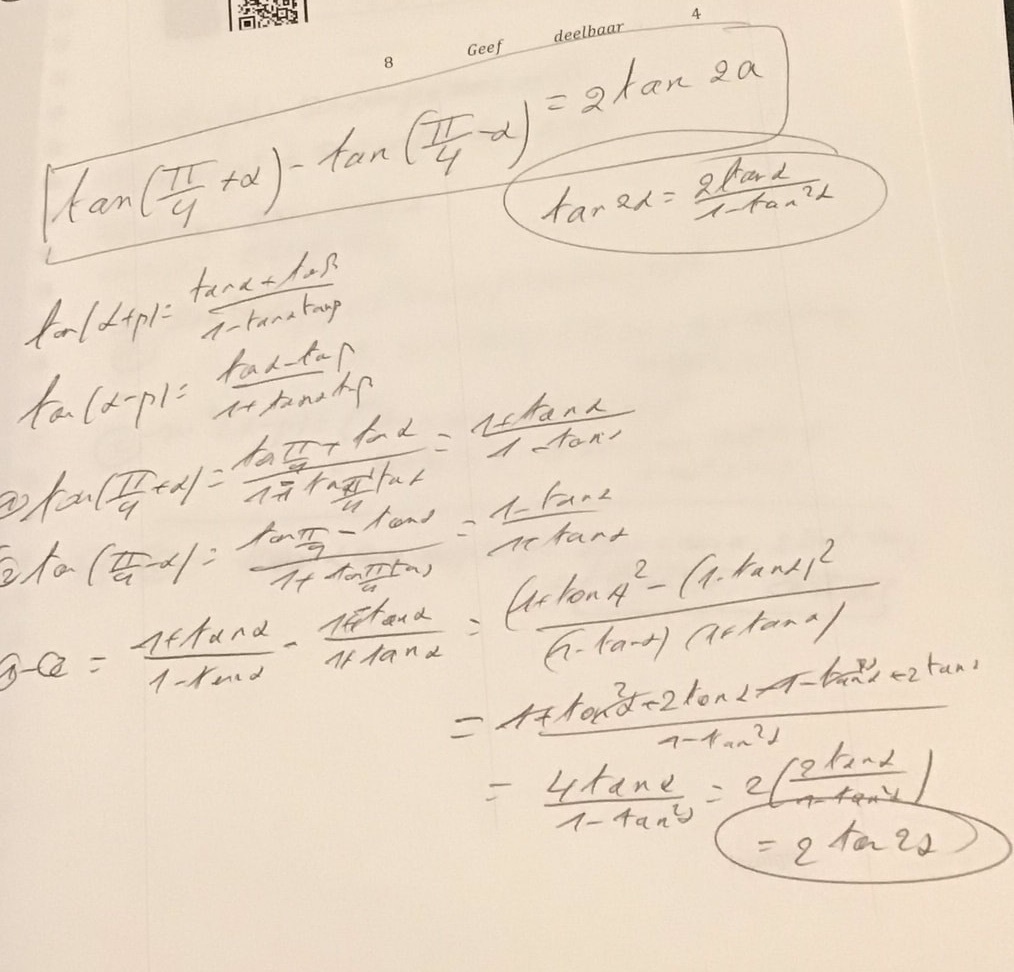 8 Geef deelbaar 4
tan(π/4 + α) - tan(π/4 - α) = 2 tan 2a
tan 2α = 2tanα / 1 - tan²α
tan(α+β) = tanα + taβ / 1 - tanα tanβ
tan(α-β) = taα - taβ / 1 + tanα tβ
① tan(π/4 + α) = ta π/4 + taα / 1 - tan π/4 taα = 1+tanα / 1-tanα
② ta(π/4 - α) = tan π/4 - tanα / 1 + tan π/4 taα = 1-tanα / 1+tanα
①-② = 1+tanα / 1-tanα - 1-tanα / 1+tanα = (1+tanα)² - (1-tanα)² / (1-tanα)(1+tanα)
= 1+tan²α+2tanα-1-tan²α+2tanα / 1-tan²α
= 4tanα / 1-tan²α = 2(2tanα / 1-tan²α)
= 2 ta 2α